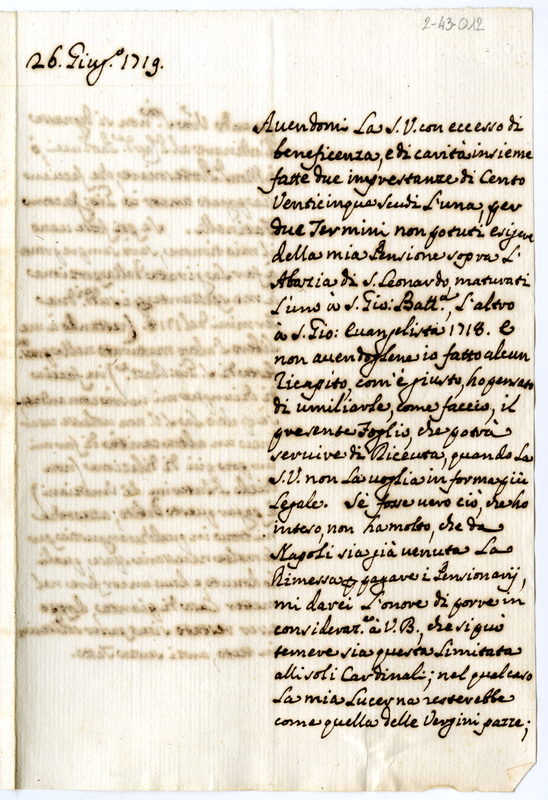 2-43-012
26. Giug.º 1719.
Auendomi La S.V. con eccesso di
beneficenza, e di carità insieme
fatte due imprestanze di Cento
Venticinque scudi L'una, per
due Termini non potuti esigere
della mia Pensione sopra L'
Abazia di S. Leonardo, maturati
L'uno à S. Gio: Batt.ª, L'altro
à S. Gio: Euangelista 1718. E
non auendoglene io fatto alcun
Ricapito, com'è giusto, ho pensato
di umiliarle, come faccio, il
presente Foglio, che potrà
seruire di Riceuta, quando La
S.V. non La uoglia in forma più
Legale. Sè fosse uero ciò, che ho
inteso, non ha molto, che da
Napoli sia già uenuta La
Rimessa p pagare i Pensionarij,
mi darei L'onore di porre in
consideraz.e à V.B., che si può
temere sia questa Limitata
alli soli Cardinali; nel qual caso
La mia Lucerna resterebbe
come quella delle Vergini pazze;